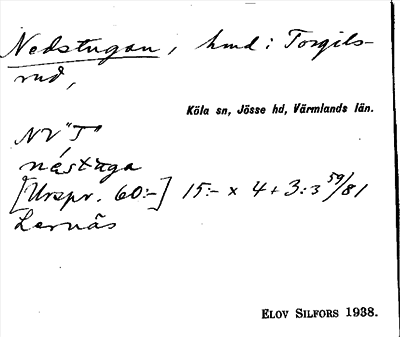 Nedstugan, hmd: Torgils-
rud,
Köla sn, Jösse hd, Värmlands län.
NV "T"
néstuga
[Urspr. 60:-] 15:- x 4 + 3:3 59/81
Lernäs
ELOV SILFORS 1938.